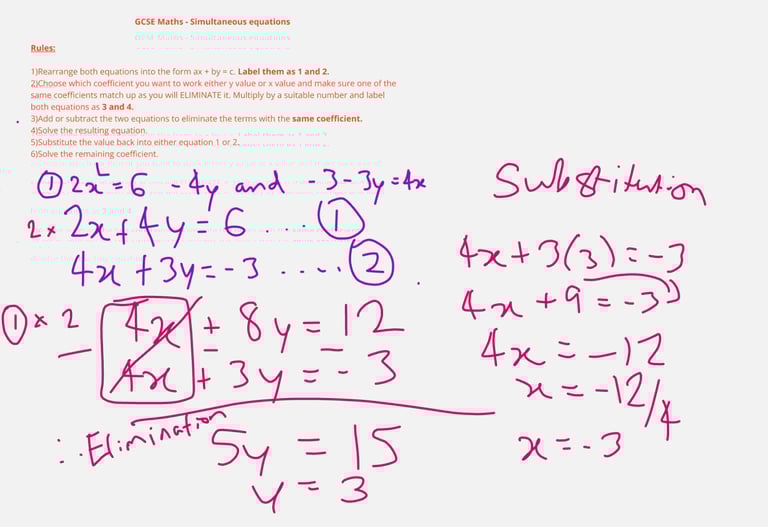 GCSE Maths - Simultaneous equations
Rules:
1)Rearrange both equations into the form ax + by = c. Label them as 1 and 2.
2)Choose which coefficient you want to work either y value or x value and make sure one of the
same coefficients match up as you will ELIMINATE it. Multiply by a suitable number and label
both equations as 3 and 4.
3)Add or subtract the two equations to eliminate the terms with the same coefficient.
4)Solve the resulting equation.
5)Substitute the value back into either equation 1 or 2.
6)Solve the remaining coefficient.
① 2x = 6 - 4y and - 3 - 3y = 4x
2 × 2x + 4y = 6 .... ①
4x + 3y = -3 ..... ②
① × 2 4x + 8y = 12
- 4x + 3y = - 3
∴ Elimination
5y = 15
y = 3
Substitution
4x + 3(3) = -3
4x + 9 = -3
4x = -12
x = -12/4
x = -3